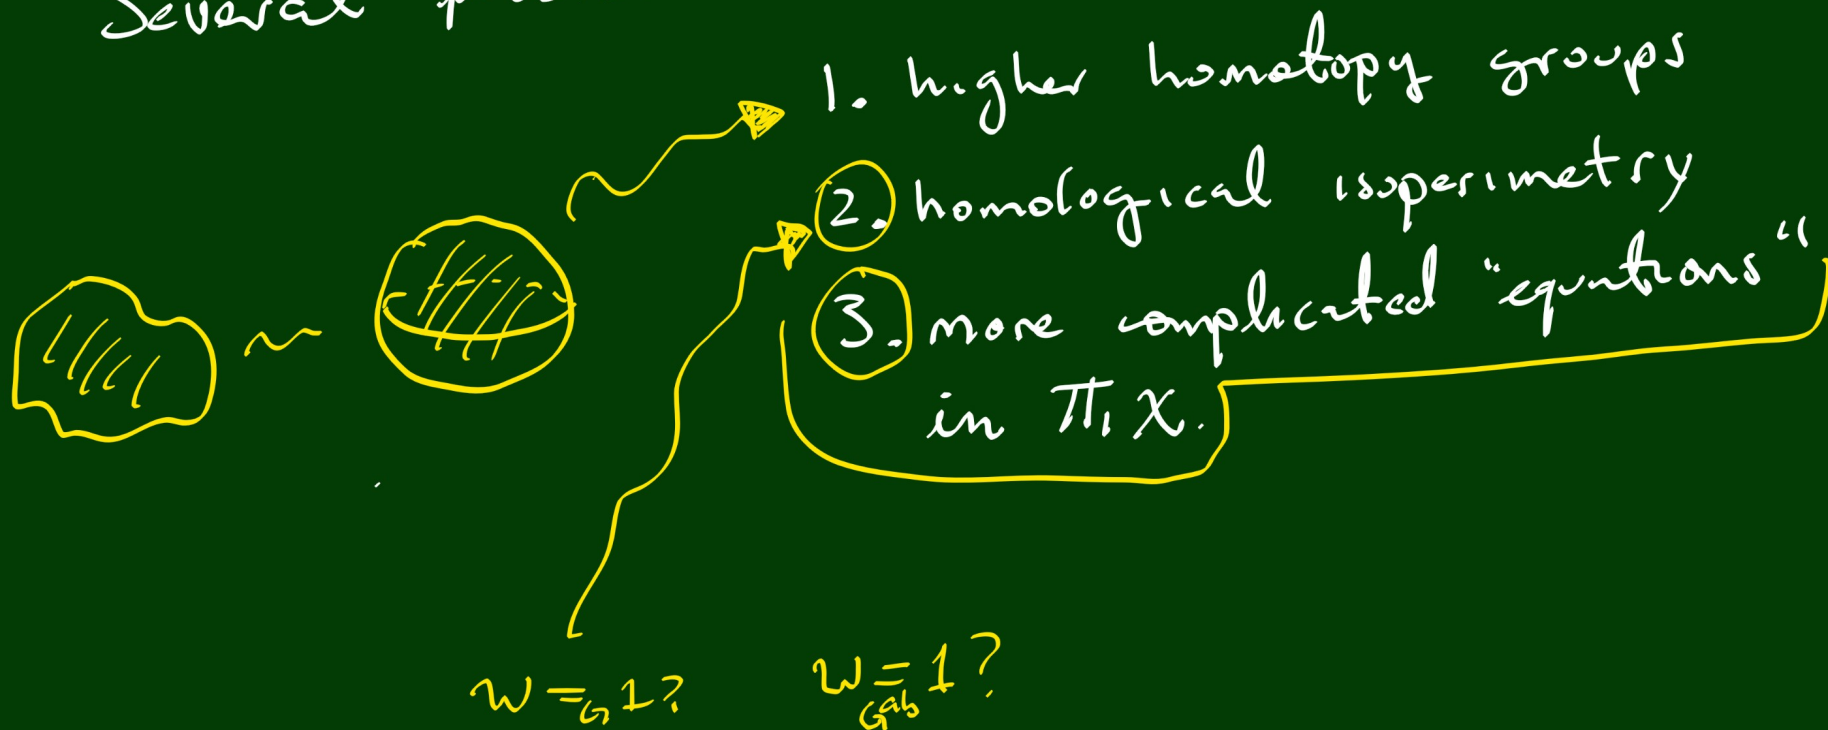 Several
1. higher homotopy groups
2. homological isoperimetry
3. more complicated "equations"
in π₁ X.
w =_G 1? w =_{G^{ab}} 1?